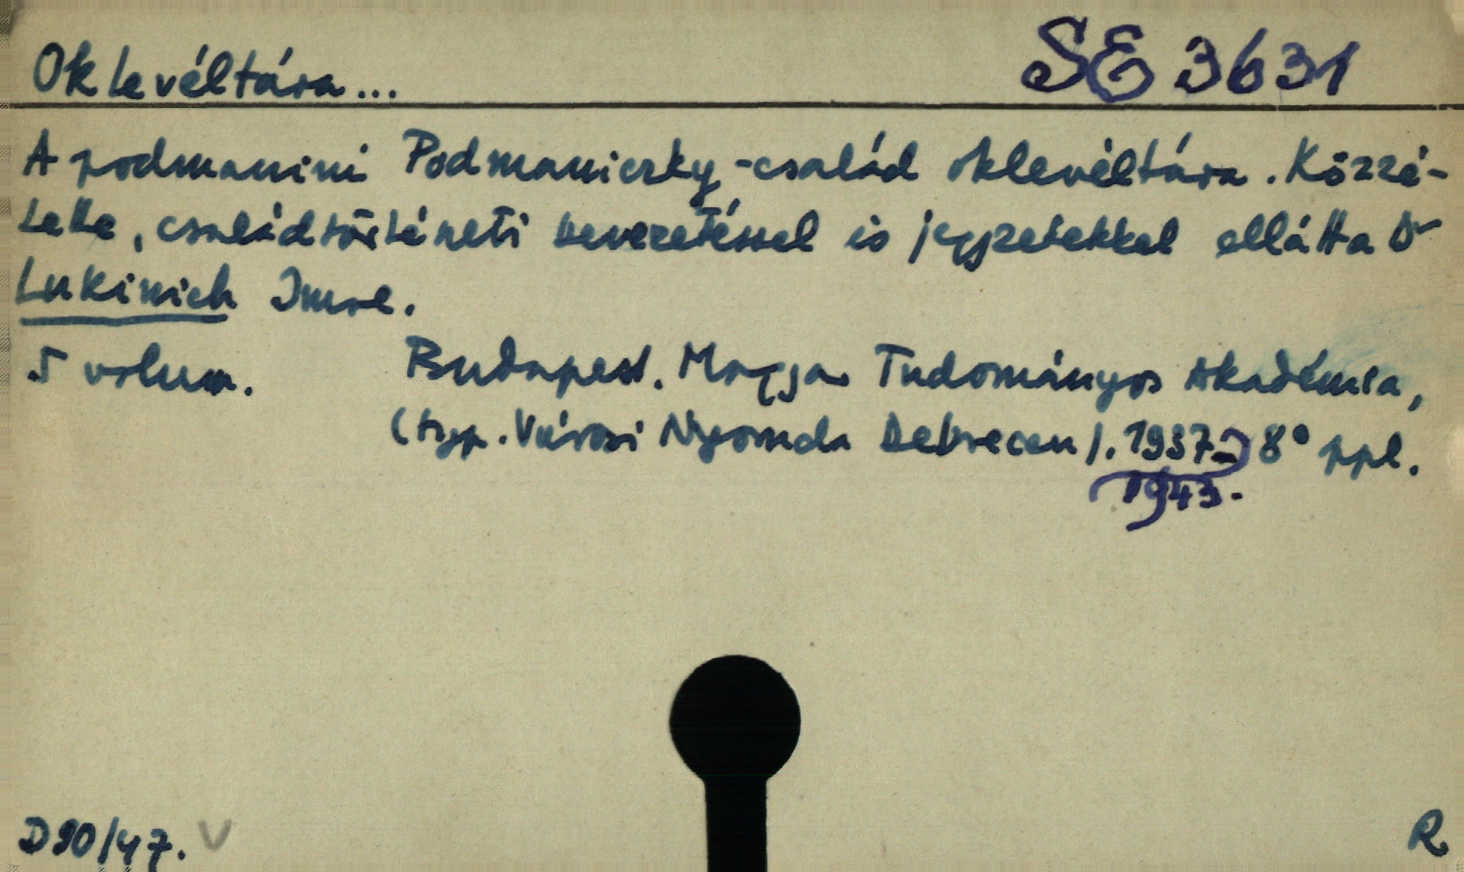 Oklevéltára... SE 3631
A podmanini Podmaniczky-család oklevéltára. Közzé-
tette, családtörténeti bevezetéssel és jegyzetekkel ellátta Dr
Lukinich Imre.
5 volum. Budapest. Magyar Tudományos Akadémia,
(typ. Városi Nyomda Debrecen). 1937- 8° ppl.
1943.
D90/47. V R